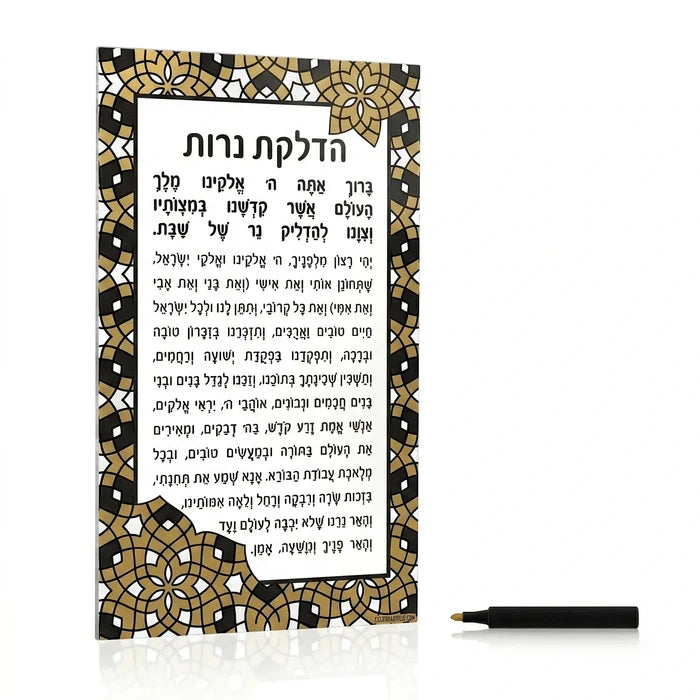 הדלקת נרות
בָּרוּךְ אַתָּה ה׳ אֱלֹקֵינוּ מֶלֶךְ
הָעוֹלָם אֲשֶׁר קִדְּשָׁנוּ בְּמִצְוֹתָיו
וְצִוָּנוּ לְהַדְלִיק נֵר שֶׁל שַׁבָּת.
יְהִי רָצוֹן מִלְּפָנֶיךָ, ה׳ אֱלֹקֵינוּ וֵאלֹקֵי יִשְׂרָאֵל,
שֶׁתְּחוֹנֵן אוֹתִי וְאֶת אִישִׁי (וְאֶת בָּנַי וְאֶת אָבִי
וְאֶת אִמִּי) וְאֶת כָּל קְרוֹבַי, וְתִתֵּן לָנוּ וּלְכָל יִשְׂרָאֵל
חַיִּים טוֹבִים וַאֲרֻכִּים, וְתִזְכְּרֵנוּ בְּזִכְרוֹן טוֹבָה
וּבְרָכָה, וְתִפְקְדֵנוּ בִּפְקֻדַּת יְשׁוּעָה וְרַחֲמִים,
וְתַשְׁכִּין שְׁכִינָתְךָ בְּתוֹכֵנוּ, וְזַכֵּנוּ לְגַדֵּל בָּנִים וּבְנֵי
בָּנִים חֲכָמִים וּנְבוֹנִים, אוֹהֲבֵי ה׳, יִרְאֵי אֱלֹקִים,
אַנְשֵׁי אֱמֶת זֶרַע קֹדֶשׁ, בַּה׳ דְּבֵקִים, וּמְאִירִים
אֶת הָעוֹלָם בַּתּוֹרָה וּבְמַעֲשִׂים טוֹבִים, וּבְכָל
מְלֶאכֶת עֲבוֹדַת הַבּוֹרֵא. אָנָּא שְׁמַע אֶת תְּחִנָּתִי,
בִּזְכוּת שָׂרָה וְרִבְקָה וְרָחֵל וְלֵאָה אִמּוֹתֵינוּ,
וְהָאֵר נֵרֵנוּ שֶׁלֹּא יִכְבֶּה לְעוֹלָם וָעֶד
וְהָאֵר פָּנֶיךָ וְנִוָּשֵׁעָה, אָמֵן.